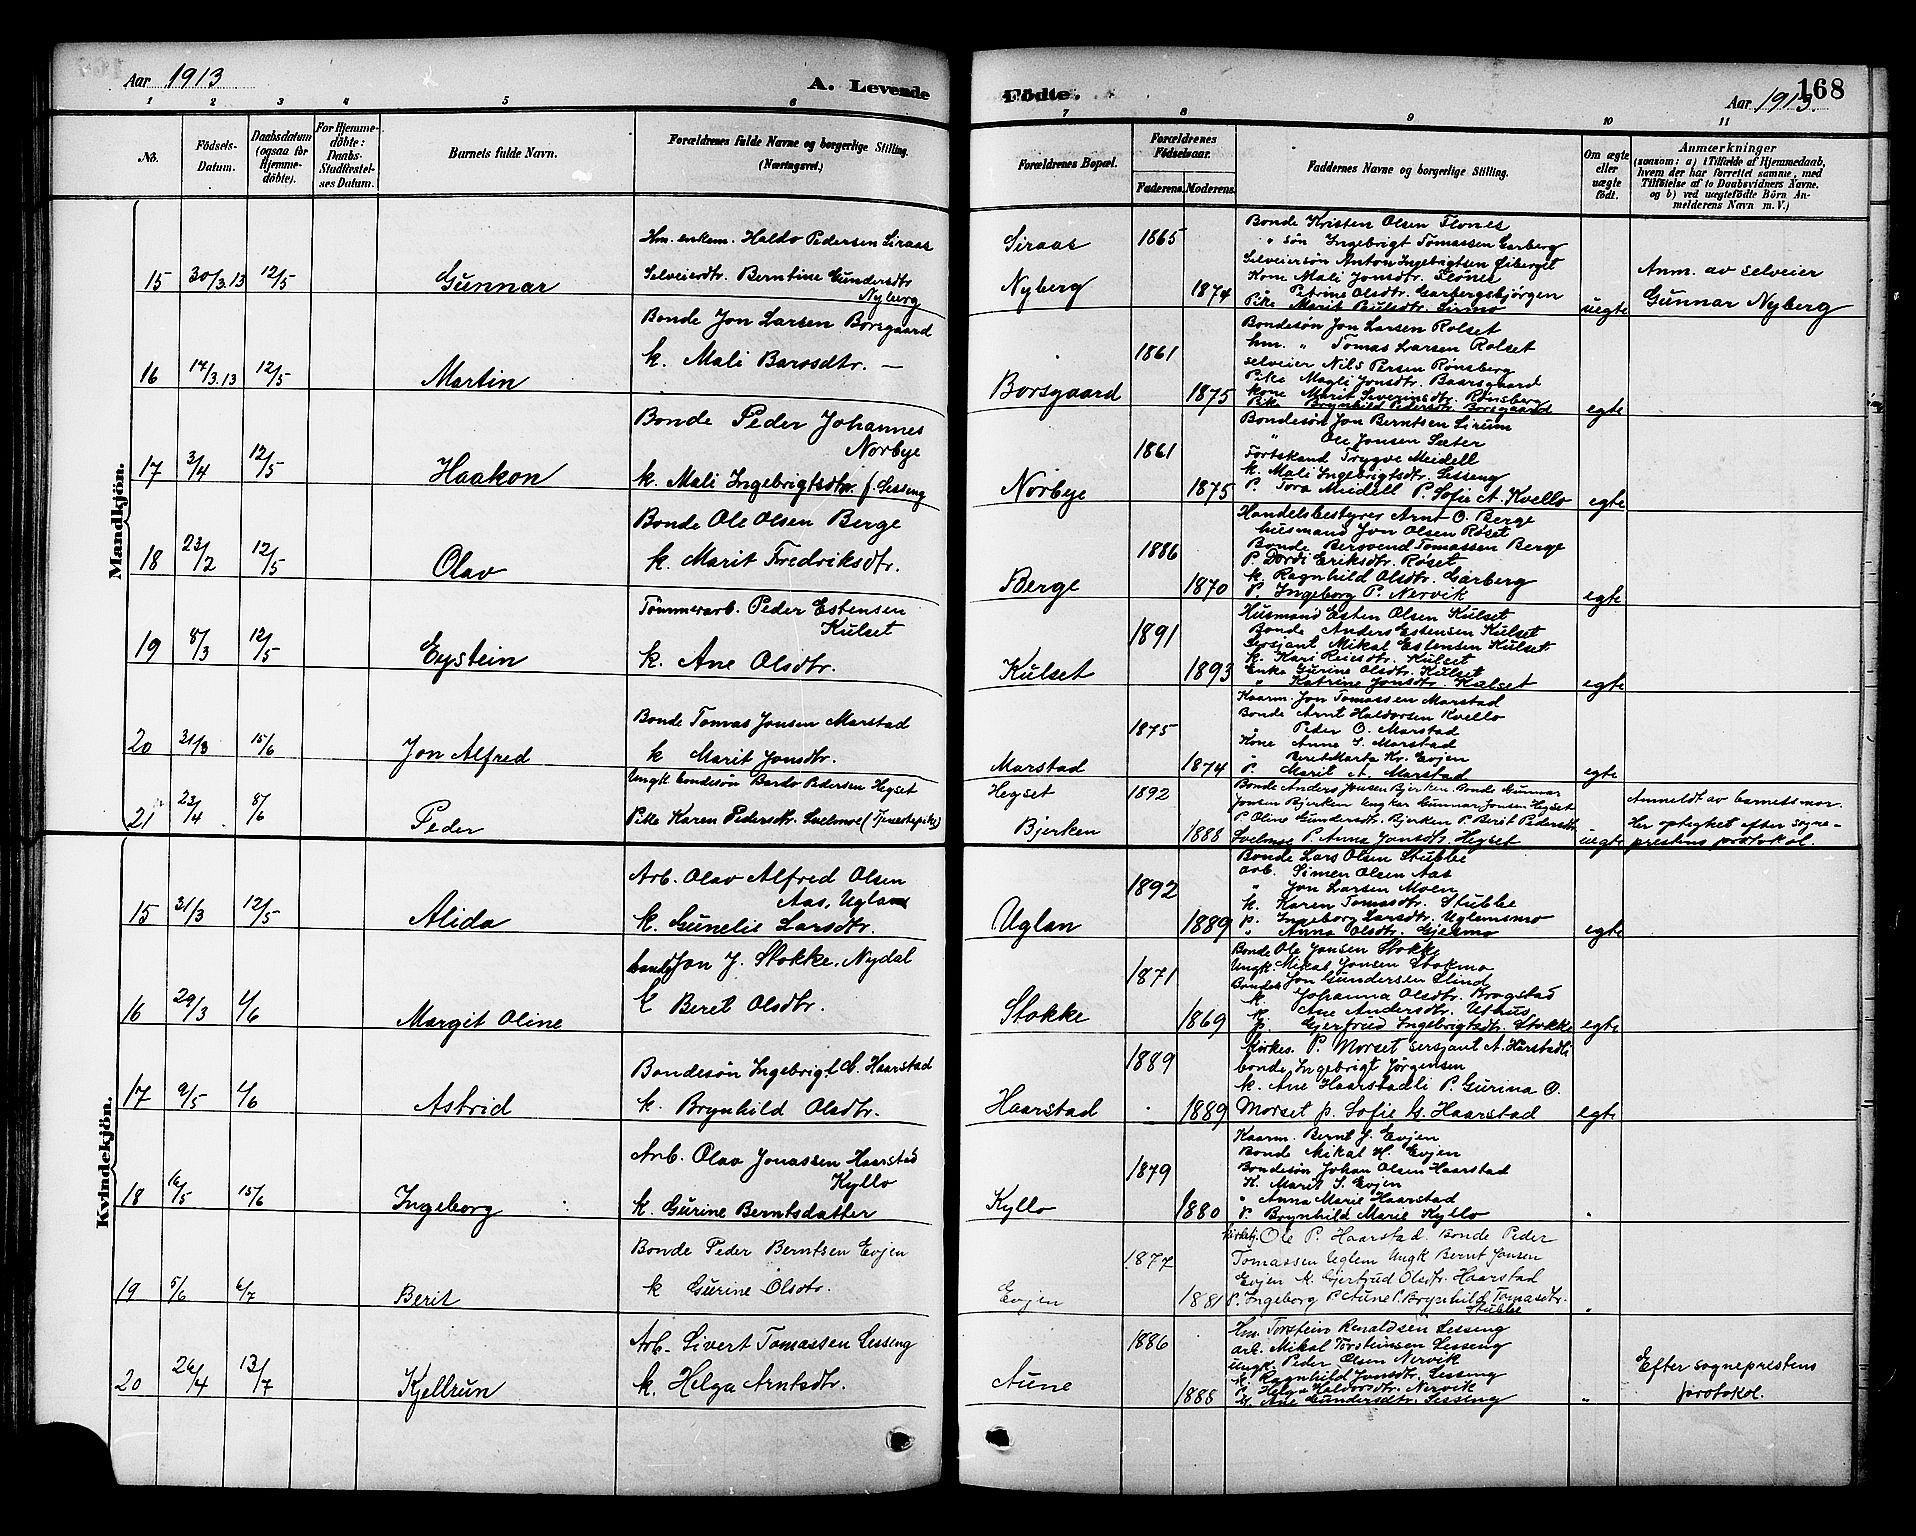 Aar 1913
A. Levende
Födte.
Aar 1913.
168
1 2 3 4 5 6 7 8 9 10 11
No.
Födsels-
Datum.
Daabsdatum
(ogsaa for
Hjemme-
döbte).
For Hjemme-
döbte:
Daabs-
Stadfæstel-
ses Datum.
Barnets fulde Navn.
Forældrenes fulde Navne og borgerlige Stilling.
(Næringsvei.)
Forældrenes Bopæl.
Forældrenes
Födselsaar.
Faderens. Moderens.
Faddernes Navne og borgerlige Stilling.
Om ægte
eller
uægte
födt.
Anmærkninger
(saasom: a) i Tilfælde af Hjemmedaab,
hvem der har forrettet samme, med
Tilföielse af to Daabsvidners Navne.
og b) ved uægtefödte Börn An-
melderens Navn m. V.)
Mandkjön.
15 30/3.13 12/5 Gunnar
Hm. enkem. Haldo Pedersen Siraas
Selveierdtr. Berntine Gundersdtr
Nyberg
Siraas
Nyberg
1865
1874
Bonde Kristen Olsen Flones
" søn Ingebrigt Tomassen Garberg
Selveiersøn Anton Ingebrigtsen Øiberget
Kone Mali Jonsdtr. Flønes
" Petrine Olsdtr. Garbergsbjørgen
Pike Marit Paulsdtr. Sirmo
uegte
Anm. av selveier
Gunnar Nyberg
16 14/3.13 12/5 Martin
Bonde Jon Larsen Borsgaard
k. Mali Barosdtr. —
Borsgaard
1861
1875
Bondesøn Jon Larsen Rolset
hm. " Tomas Larsen Rolset
selveier Nils Persen Rønsberg
Pike Magli Jonsdtr. Baarsgaard
kone Marit Severinsdtr. Rønsberg
Pike Brynhild Pedersdtr Borsgaard
egte
17 3/4 12/5 Haakon
Bonde Peder Johannes
Norbye
k. Mali Ingebrigtsdtr. f. Sesseng
Norbye
1861
1875
Bondesøn Jon Berntsen Sirum
" Ole Jonsen Sæter
Forstkand Trygve Meidell
k. Mali Ingebrigtsdtr. Sesseng
P. Tora Meidell P. Sofie A. Kvello
egte
18 23/2 12/5 Olav
Bonde Ole Olsen Berge
k. Marit Fredriksdtr.
Berge
1886
1870
Handelsbestyrer Arnt O. Berge
husmand Jon Olsen Røset
Bonde Bersvend Tomassen Berge
P. Dordi Eriksdtr. Røset
k. Ragnhild Olsdtr. Garberg
P. Ingeborg P. Nervik
egte
19 8/3 12/5 Eystein
Tømmerarb. Peder Estensen
Kulset
k. Ane Olsdtr.
Kulset
1891
1893
Husmand Esten Olsen Kulset
Bonde Anders Estensen Kulset
Sersjant Mikal Estensen Kulset
k. Kari Reiesdtr. Kulset
Enke Gurine Olsdtr. Kulset
" Katrine Jonsdtr. Kulset
egte
20 31/3 15/6 Jon Alfred
Bonde Tomas Jonsen Marstad
k Marit Jonsdtr.
Marstad
1875
1874
Kaarm. Jon Tomassen Marstad
Bonde Arnt Haldorsen Kvello
" Peder O. Marstad
Kone Anne S. Marstad
" Beret Marta Kr. Evjen
P. Marit A. Marstad
egte
21 23/4 8/6 Peder
Ungk bondesøn Bardo Pedersen Hegset
Pike Karen Pedersdtr. Svelmoe (Tjenestepike)
Hegset
Bjerken
1892
1888
Bonde Anders Jonsen Bjerken. Bonde Gunnar
Jonsen Bjerken Ungkar Gunnar Jonsen Hegset
P. Oline Gundersdtr. Bjerken P. Berit Pedersdtr
Svelmoe P. Anna Jonsdtr. Hegset
uegte
Anmeldt av barnets mor.
Her optegnet efter sogne-
prestens protokol.
Kvindekjön.
15 31/3 12/5 Alida
Arb. Olav Alfred Olsen
Aas, Uglan
k. Gunelie Larsdtr.
Uglan
1892
1889
Bonde Lars Olsen Stubbe
arb. Simen Olsen Aas
" Jon Larsen Moen
k. Karen Tomasdtr. Stubbe
p. Ingeborg Larsdtr. Uglemsmo
" Anna Olsdtr. Gjelmo
egte
16 29/3 1/6 Margit Oline
bonde Jon J. Stokke, Nydal
k Beret Olsdtr.
Stokke
1871
1869
Bonde Ole Jonsen Stokke
Ungk. Mikal Jonsen Stokmo
Bondes Jon Gundersen Slind
k. Johanna Olsdtr. Krogstad
k. Ane Andersdtr. Uthus
p. Gjertrud Ingebrigtsdtr. Stokke
egte
17 9/5 1/6 Astrid
Bondesøn Ingebrigt O. Haarstad
k. Brynhild Olsdtr.
Haarstad
1889
1889
Kirkes. P. Morset sersjant A. Harstadli
bonde Ingebrigt Jørgensen
k. Ane Haarstadli P. Gurina O.
Morset p. Sofie G. Haarstad
egte
18 16/5 15/6 Ingeborg
Arb. Olav Jonassen Haarstad
Kyllo
k. Gurine Berntsdatter
Kyllo
1879
1880
Kaarm. Bernt J. Evjen
Bonde Mikal H. Evjen
Bondesøn Johan Olsen Haarstad
K. Marit S. Evjen
" Anna Marie Haarstad
P. Brynhild Marie Kyllo
"
19 5/6 6/7 Berit
Bonde Peder Berntsen Evjen
k Gurine Olsdtr.
Evjen
1877
1881
Kirketj. Ole P. Haarstad. Bonde Peder
Tomassen Uglem Ungk Bernt Jonsen
Evjen K. Gjertrud Olsdtr. Haarstad
P. Ingeborg P. Aune P. Brynhild Tomasdtr.
Stubbe
"
20 26/4 13/7 Kjellrun
Arb. Sivert Tomassen Sesseng
k. Helga Arntsdtr.
Aune
1886
1888
Hm. Torstein Renaldsen Sesseng
arb. Mikal Torsteinsen Sesseng
ungk. Peder Olsen Nervik
k. Ragnhild Jonsdtr. Sesseng
p. Helga Haldorsdtr. Nervik
k. Ane Gundersdtr. Sesseng
"
Efter sogneprestens
protokol.